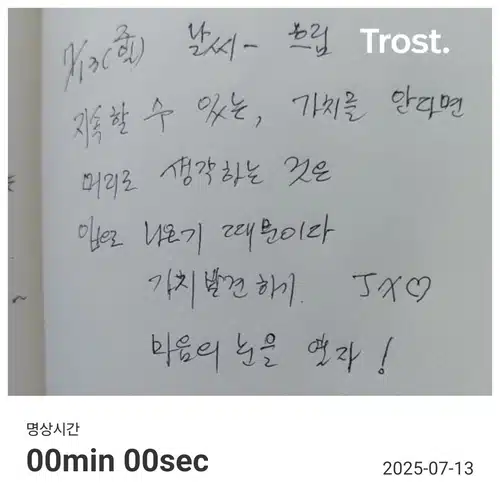 7/13(주일) 날씨 - 흐림
Trost.
지속할 수 있는, 가치를 안다면
머리로 생각하는 것은
입으로 나오기 때문이다
가치 발견하기. J X ♡
마음의 눈을 열자!
명상시간
00min 00sec
2025-07-13